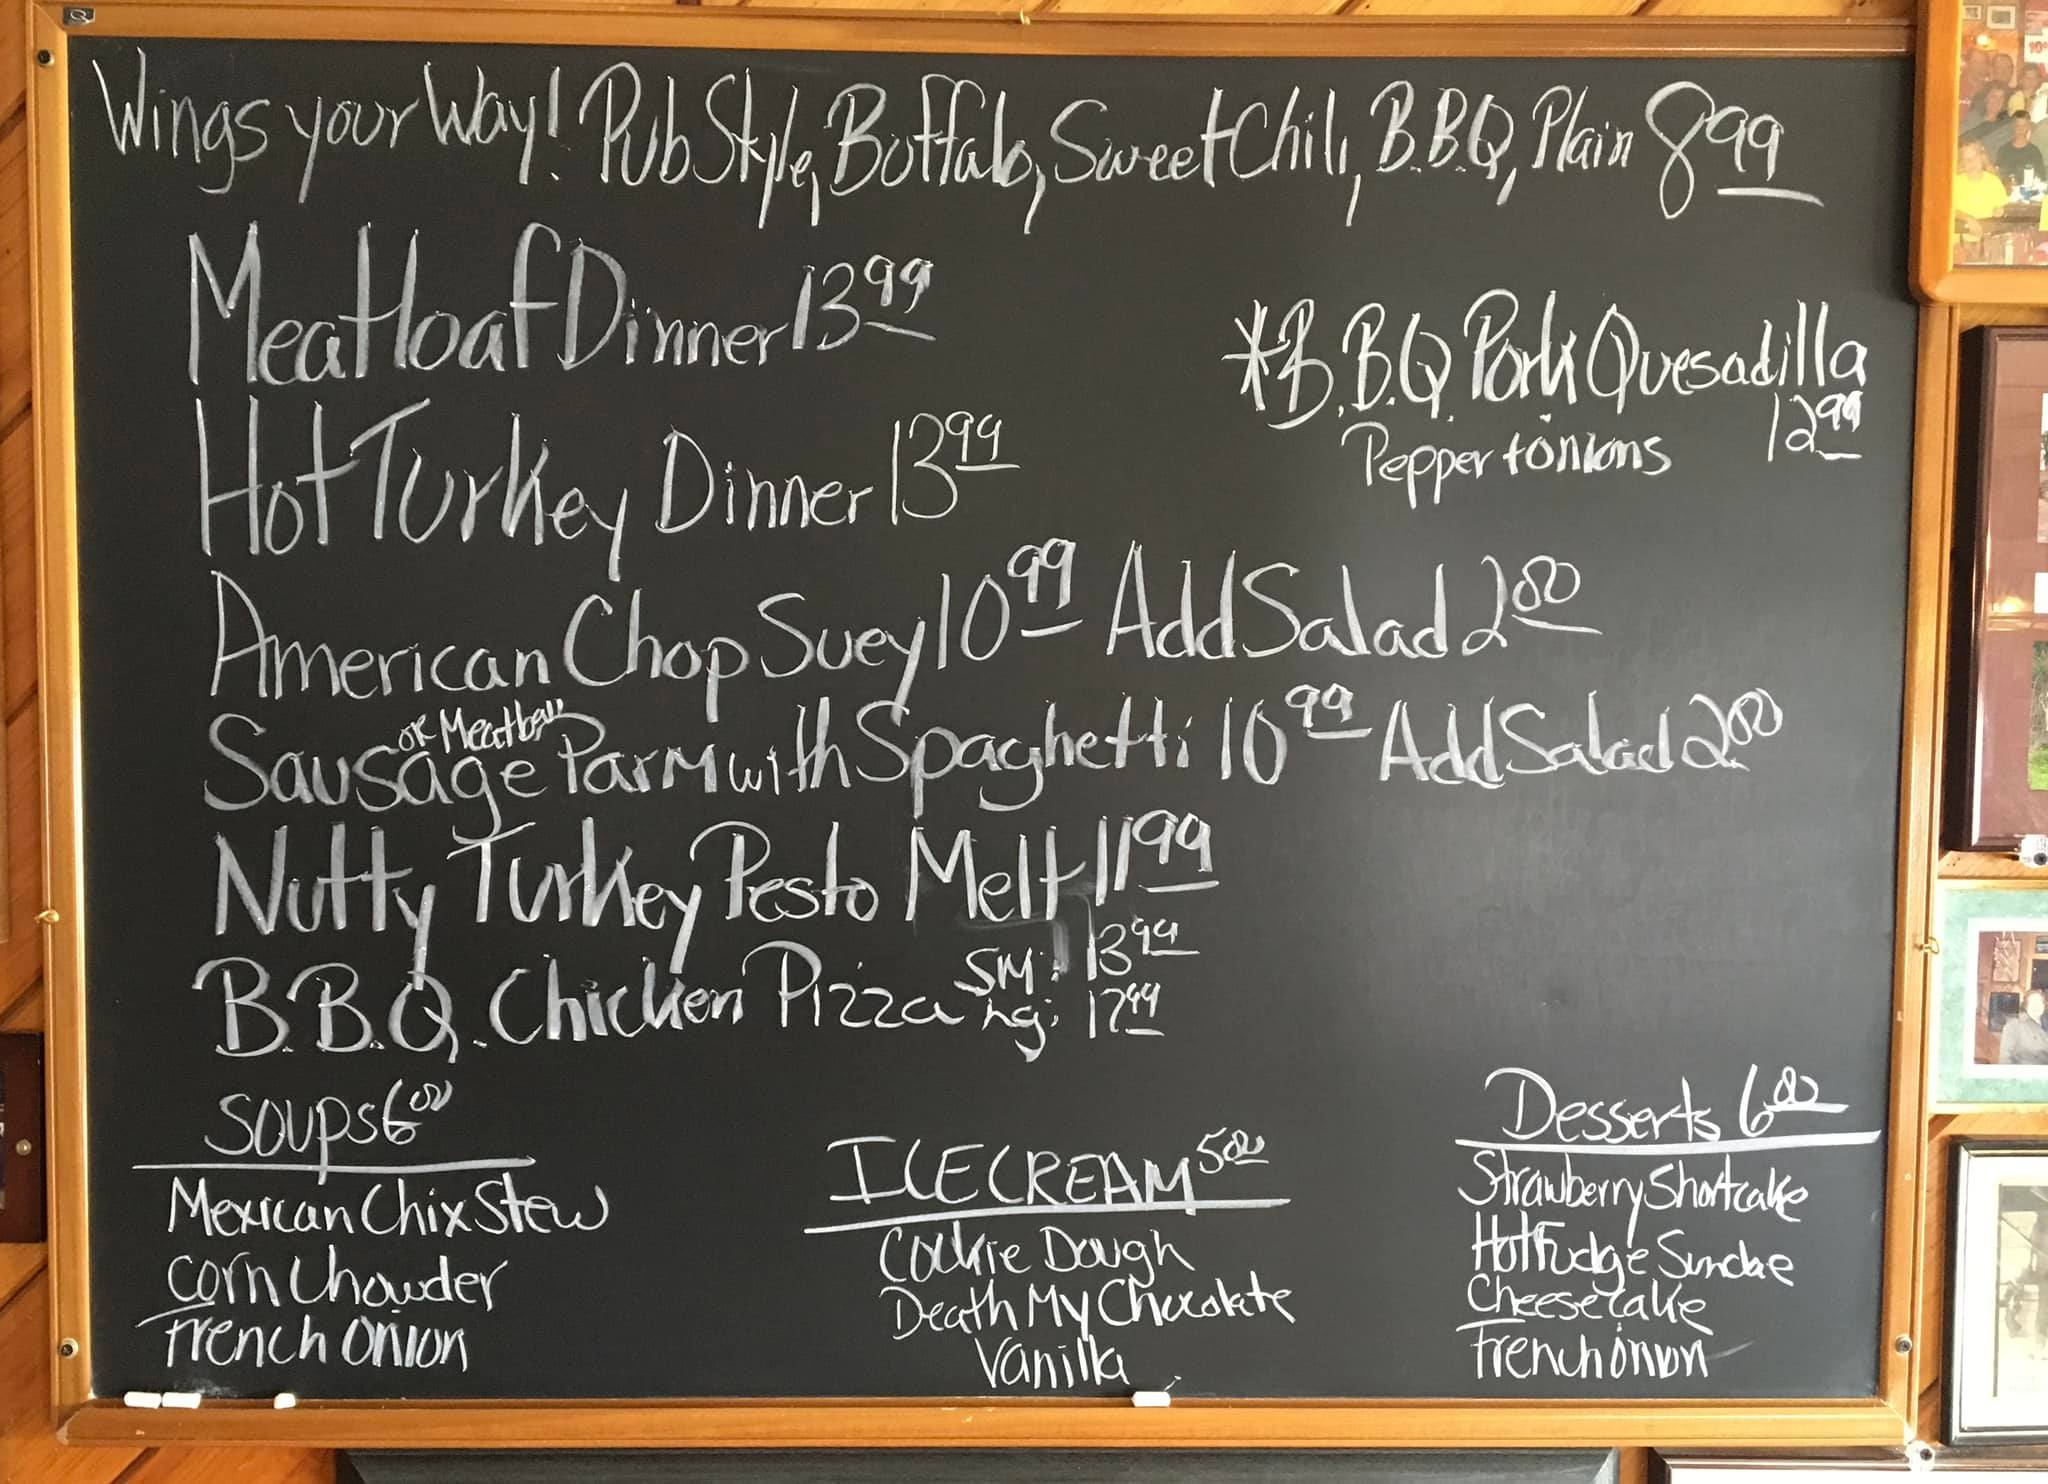 Wings your Way! Pub Style, Buffalo, Sweet Chili, B.B.Q, Plain 8.99
Meatloaf Dinner 13.99
*B.B.Q. Pork Quesadilla
Pepper + onions 12.99
Hot Turkey Dinner 13.99
American Chop Suey 10.99 Add Salad 2.00
or Meatball
Sausage Parm with Spaghetti 10.99 Add Salad 2.00
Nutty Turkey Pesto Melt 11.99
B.B.Q. Chicken Pizza SM: 13.99
Lg: 17.99
SOUPS 6.00
Mexican Chix Stew
Corn Chowder
French Onion
ICE CREAM 5.00
Cookie Dough
Death My Chocolate
Vanilla
Desserts 6.00
Strawberry Shortcake
Hot Fudge Sundae
Cheesecake
French onion